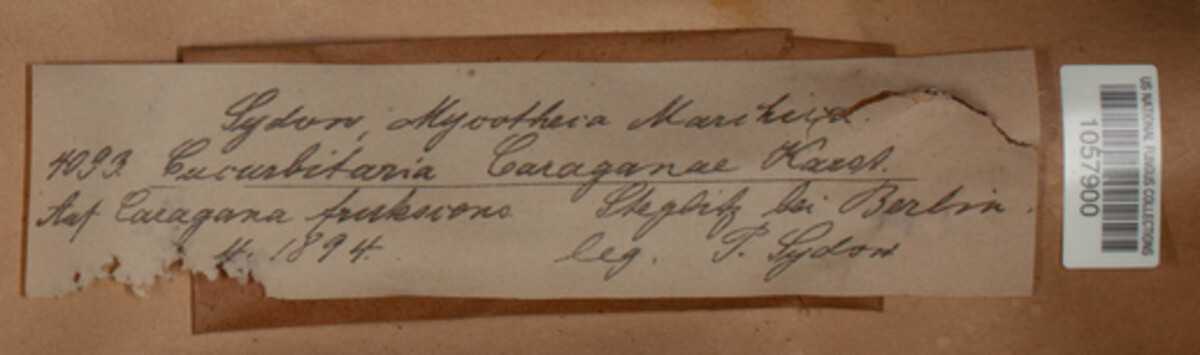 Sydow, Mycotheca Marchica.
4093. Cucurbitaria Caraganae Karst.
Auf Caragana frutescens Steglitz bei Berlin.
4. 1894. leg. P. Sydow
US NATIONAL FUNGUS COLLECTIONS
1057900